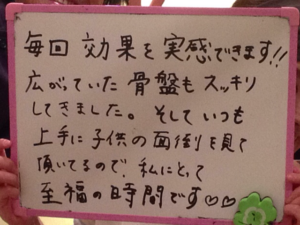 毎回 効果を実感できます!!
広がっていた 骨盤も スッキリ
してきました。そして いつも
上手に 子供の 面倒を見て
頂いてるので、私にとって
至福の時間です♡♡